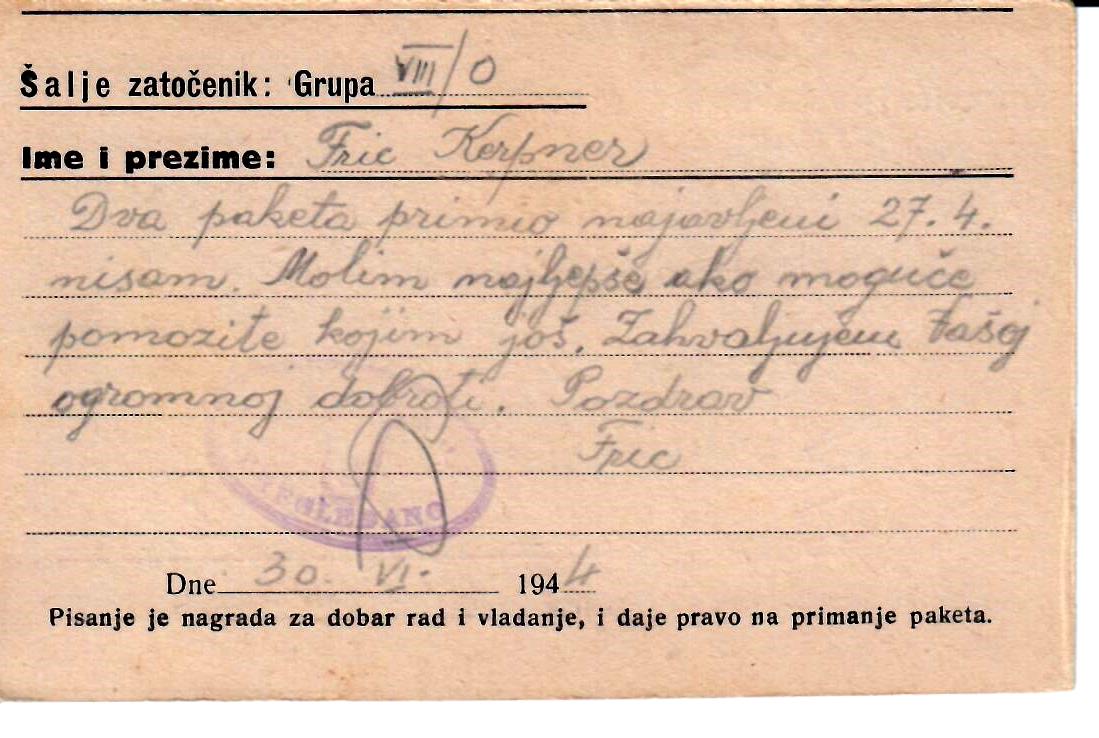 Šalje zatočenik: Grupa VIII/0
Ime i prezime: Fric Kerpner
Dva paketa primio najavljeni 27.4.
nisam. Molim najljepše ako moguće
pomozite kojim još. Zahvaljujem Vašoj
ogromnoj dobroti. Pozdrav
Fric
PREGLEDANO
Dne 30. VI. 1944
Pisanje je nagrada za dobar rad i vladanje, i daje pravo na primanje paketa.